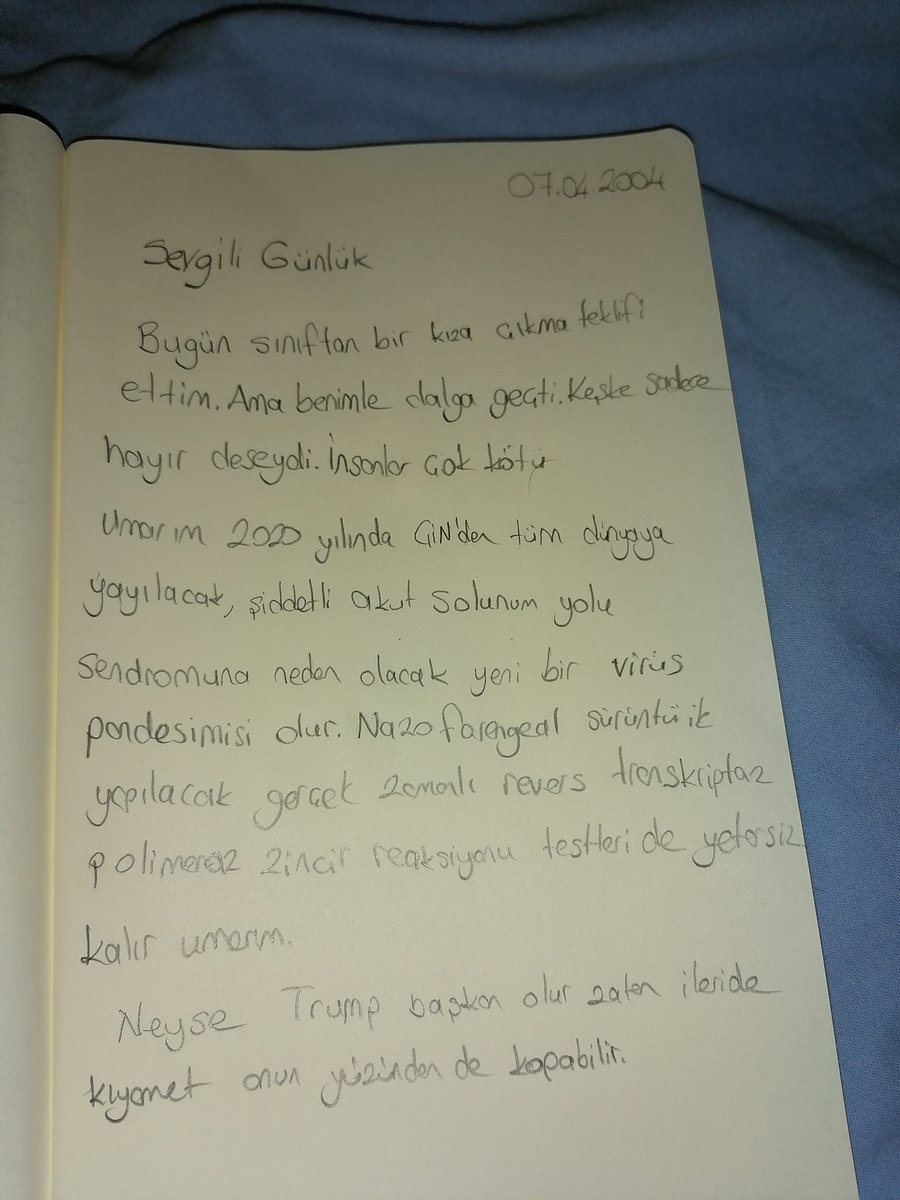 07.04.2004
Sevgili Günlük
Bugün sınıftan bir kıza çıkma teklifi
ettim. Ama benimle dalga geçti. Keşke sadece
hayır deseydi. İnsanlar çok kötü
Umarım 2020 yılında ÇiN'den tüm dünyaya
yayılacak, şiddetli akut solunum yolu
sendromuna neden olacak yeni bir virüs
pandesimisi olur. Nazofarengeal sürüntü ik
yapılacak gerçek zamanlı revers transkriptaz
polimeraz zincir reaksiyonu testleri de yetersiz
kalır umarım.
Neyse Trump başkan olur zaten ileride
kıyamet onun yüzünden de kopabilir.